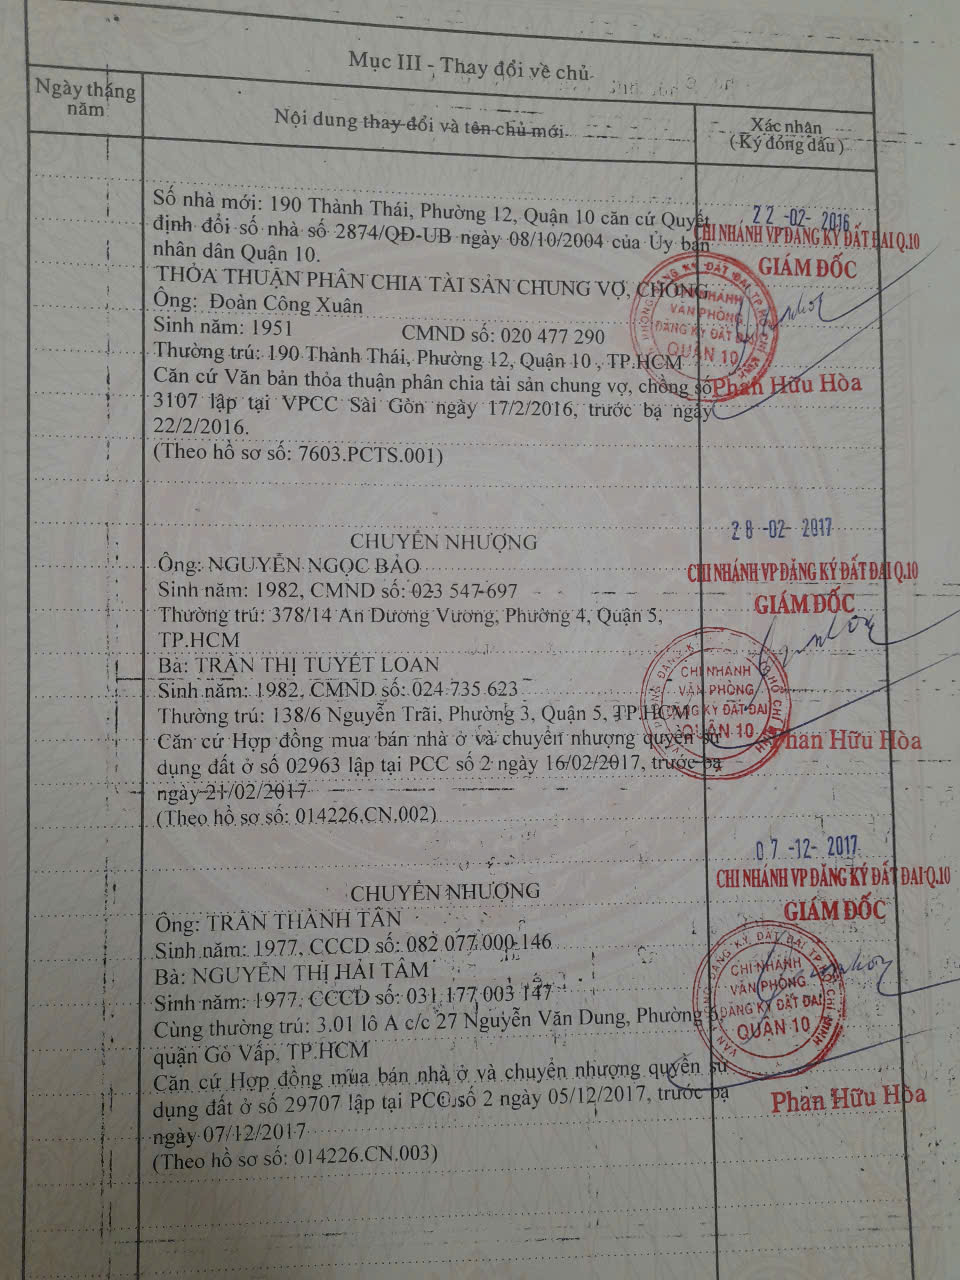 Mục III - Thay đổi về chủ
Ngày tháng năm
Nội dung thay đổi và tên chủ mới
Xác nhận
(Ký đóng dấu)
Số nhà mới: 190 Thành Thái, Phường 12, Quận 10 căn cứ Quyết
định đổi số nhà số 2874/QĐ-UB ngày 08/10/2004 của Ủy ban
nhân dân Quận 10.
THỎA THUẬN PHÂN CHIA TÀI SẢN CHUNG VỢ, CHỒNG
Ông: Đoàn Công Xuân
Sinh năm: 1951 CMND số: 020 477 290
Thường trú: 190 Thành Thái, Phường 12, Quận 10, TP.HCM
Căn cứ Văn bản thỏa thuận phân chia tài sản chung vợ, chồng số
3107 lập tại VPCC Sài Gòn ngày 17/2/2016, trước bạ ngày
22/2/2016.
(Theo hồ sơ số: 7603.PCTS.001)
22-02-2016
CHI NHÁNH VP ĐĂNG KÝ ĐẤT ĐAI Q.10
GIÁM ĐỐC
CHI NHÁNH
VĂN PHÒNG
ĐĂNG KÝ ĐẤT ĐAI
QUẬN 10
Phan Hữu Hòa
CHUYỂN NHƯỢNG
Ông: NGUYỄN NGỌC BẢO
Sinh năm: 1982, CMND số: 023 547 697
Thường trú: 378/14 An Dương Vương, Phường 4, Quận 5,
TP.HCM
Bà: TRẦN THỊ TUYẾT LOAN
Sinh năm: 1982, CMND số: 024 735 623
Thường trú: 138/6 Nguyễn Trãi, Phường 3, Quận 5, TP.HCM
Căn cứ Hợp đồng mua bán nhà ở và chuyển nhượng quyền sử
dụng đất ở số 02963 lập tại PCC số 2 ngày 16/02/2017, trước bạ
ngày 21/02/2017
(Theo hồ sơ số: 014226.CN.002)
28-02-2017
CHI NHÁNH VP ĐĂNG KÝ ĐẤT ĐAI Q.10
GIÁM ĐỐC
CHI NHÁNH
VĂN PHÒNG
ĐĂNG KÝ ĐẤT ĐAI
QUẬN 10
Phan Hữu Hòa
CHUYỂN NHƯỢNG
Ông: TRẦN THÀNH TÂN
Sinh năm: 1977, CCCD số: 082 077 000 146
Bà: NGUYỄN THỊ HẢI TÂM
Sinh năm: 1977, CCCD số: 031 177 003 147
Cùng thường trú: 3.01 lô A c/c 27 Nguyễn Văn Dung, Phường 6,
quận Gò Vấp, TP.HCM
Căn cứ Hợp đồng mua bán nhà ở và chuyển nhượng quyền sử
dụng đất ở số 29707 lập tại PCC số 2 ngày 05/12/2017, trước bạ
ngày 07/12/2017
(Theo hồ sơ số: 014226.CN.003)
07-12-2017
CHI NHÁNH VP ĐĂNG KÝ ĐẤT ĐAI Q.10
GIÁM ĐỐC
CHI NHÁNH
VĂN PHÒNG
ĐĂNG KÝ ĐẤT ĐAI
QUẬN 10
Phan Hữu Hòa